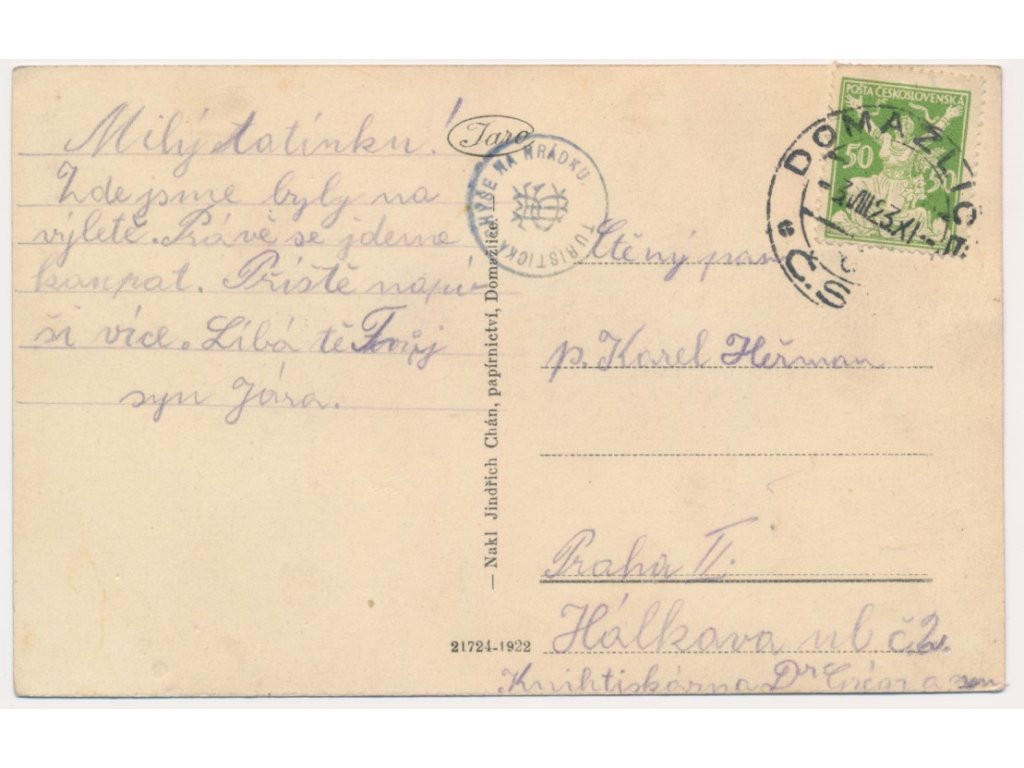 Milý tatínku!
Zde jsme byly na
výletě. Právě se jdeme
koupat. Příště napí-
ši více. Líbá tě Tvůj
syn Jára.
Taro
TURISTICKÁ CHÝŠE NA HRÁDKU.
— Nakl Jindřich Chán, papírnictví, Domažlice. —
21724-1922
POŠTA ČESKOSLOVENSKÁ
50 50
DOMAŽLICE
3.VIII.23.XI
Č.S.
Ctěný pan
p. Karel Heřman
Praha II.
Hálkava ul č.2.
Knihtiskárna Dr a syn